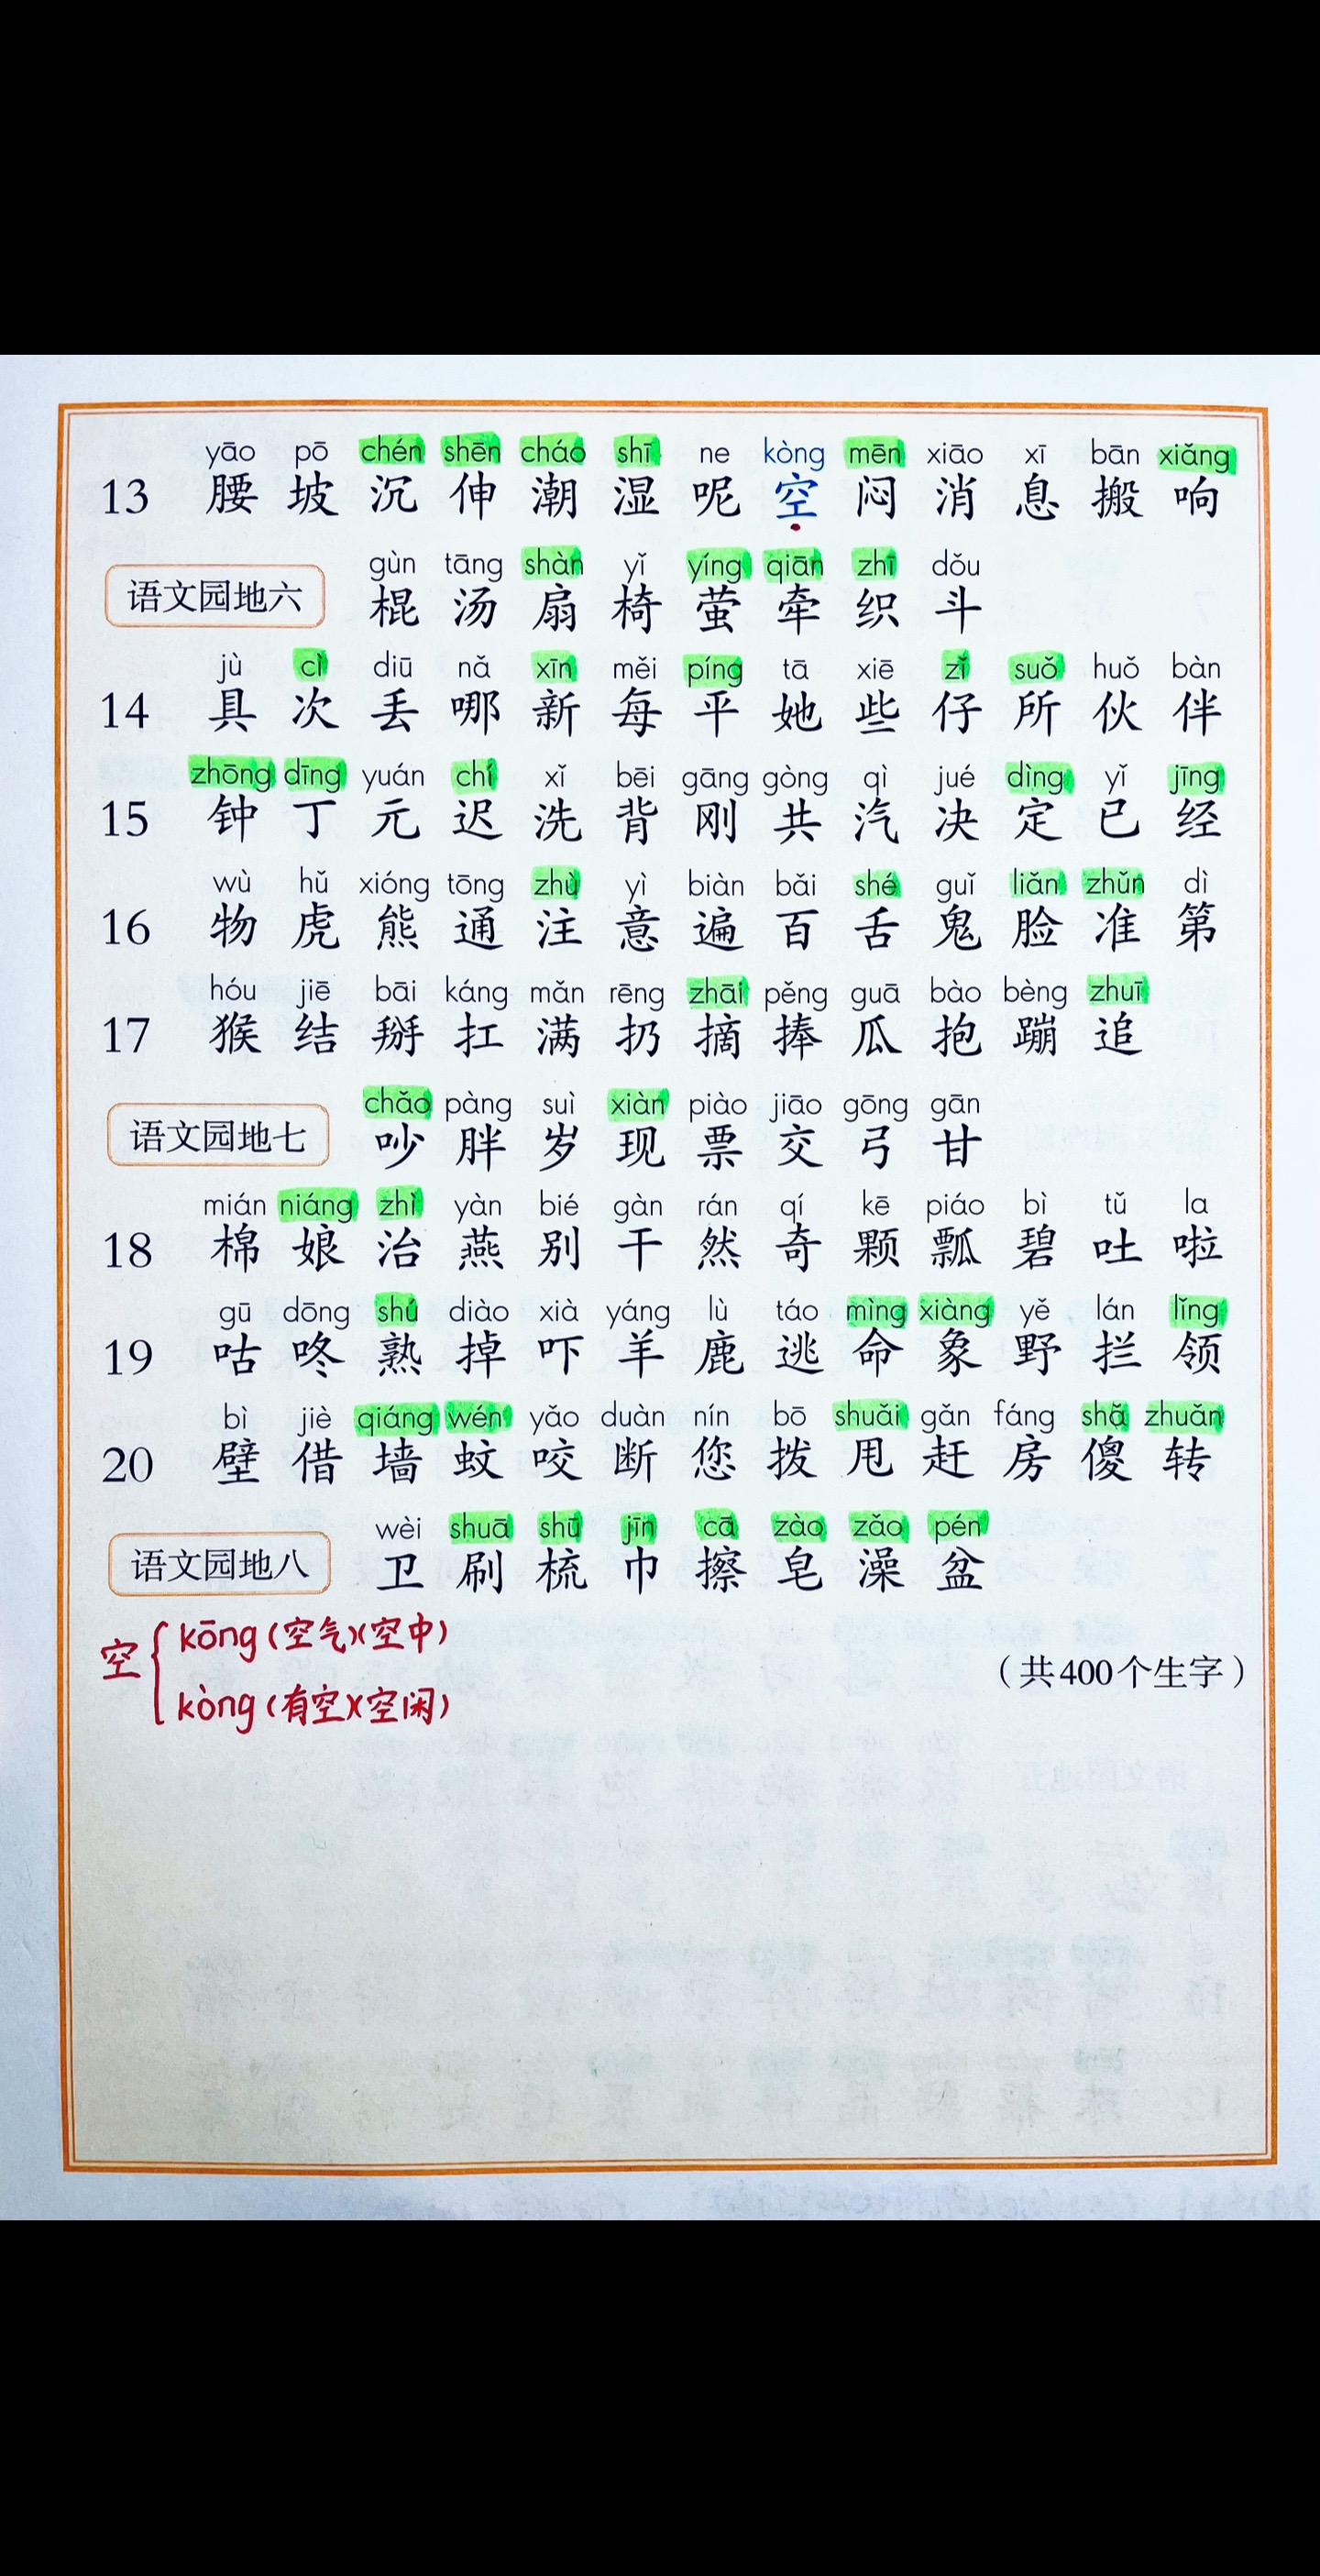 yāo pō chén shēn cháo shī ne kòng mēn xiāo xī bān xiǎng
13 腰 坡 沉 伸 潮 湿 呢 空 闷 消 息 搬 响
gùn tāng shàn yǐ yíng qiān zhī dǒu
语文园地六 棍 汤 扇 椅 萤 牵 织 斗
jù cì diū nǎ xīn měi píng tā xiē zǐ suǒ huǒ bàn
14 具 次 丢 哪 新 每 平 她 些 仔 所 伙 伴
zhōng dīng yuán chí xǐ bēi gāng gòng qì jué dìng yǐ jīng
15 钟 丁 元 迟 洗 背 刚 共 汽 决 定 已 经
wù hǔ xióng tōng zhù yì biàn bǎi shé guǐ liǎn zhǔn dì
16 物 虎 熊 通 注 意 遍 百 舌 鬼 脸 准 第
hóu jiē bāi káng mǎn rēng zhāi pěng guā bào bèng zhuī
17 猴 结 掰 扛 满 扔 摘 捧 瓜 抱 蹦 追
chǎo pàng suì xiàn piào jiāo gōng gān
语文园地七 吵 胖 岁 现 票 交 弓 甘
mián niáng zhì yàn bié gàn rán qí kē piáo bì tǔ la
18 棉 娘 治 燕 别 干 然 奇 颗 瓢 碧 吐 啦
gū dōng shú diào xià yáng lù táo mìng xiàng yě lán lǐng
19 咕 咚 熟 掉 吓 羊 鹿 逃 命 象 野 拦 领
bì jiè qiáng wén yǎo duàn nín bō shuǎi gǎn fáng shǎ zhuǎn
20 壁 借 墙 蚊 咬 断 您 拨 甩 赶 房 傻 转
wèi shuā shū jīn cā zào zǎo pén
语文园地八 卫 刷 梳 巾 擦 皂 澡 盆
空 { kōng (空气)(空中)
kòng (有空)(空闲)
（共400个生字）